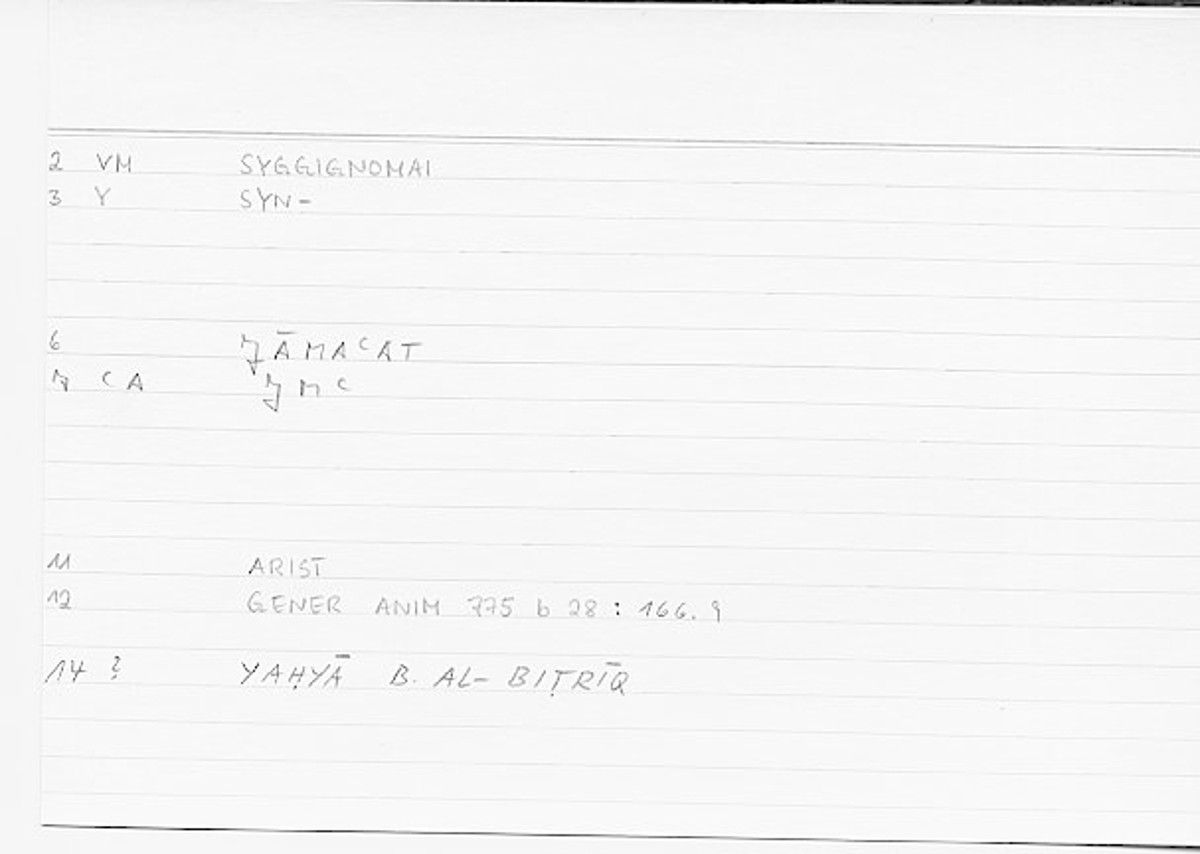 2 VM SYGGIGNOMAI
3 Y SYN-
6 ǦĀMAʿAT
7 CA ǦMʿ
11 ARIST
12 GENER ANIM 775 b 28 : 166.9
14 ? YAḤYĀ B. AL-BIṬRĪQ